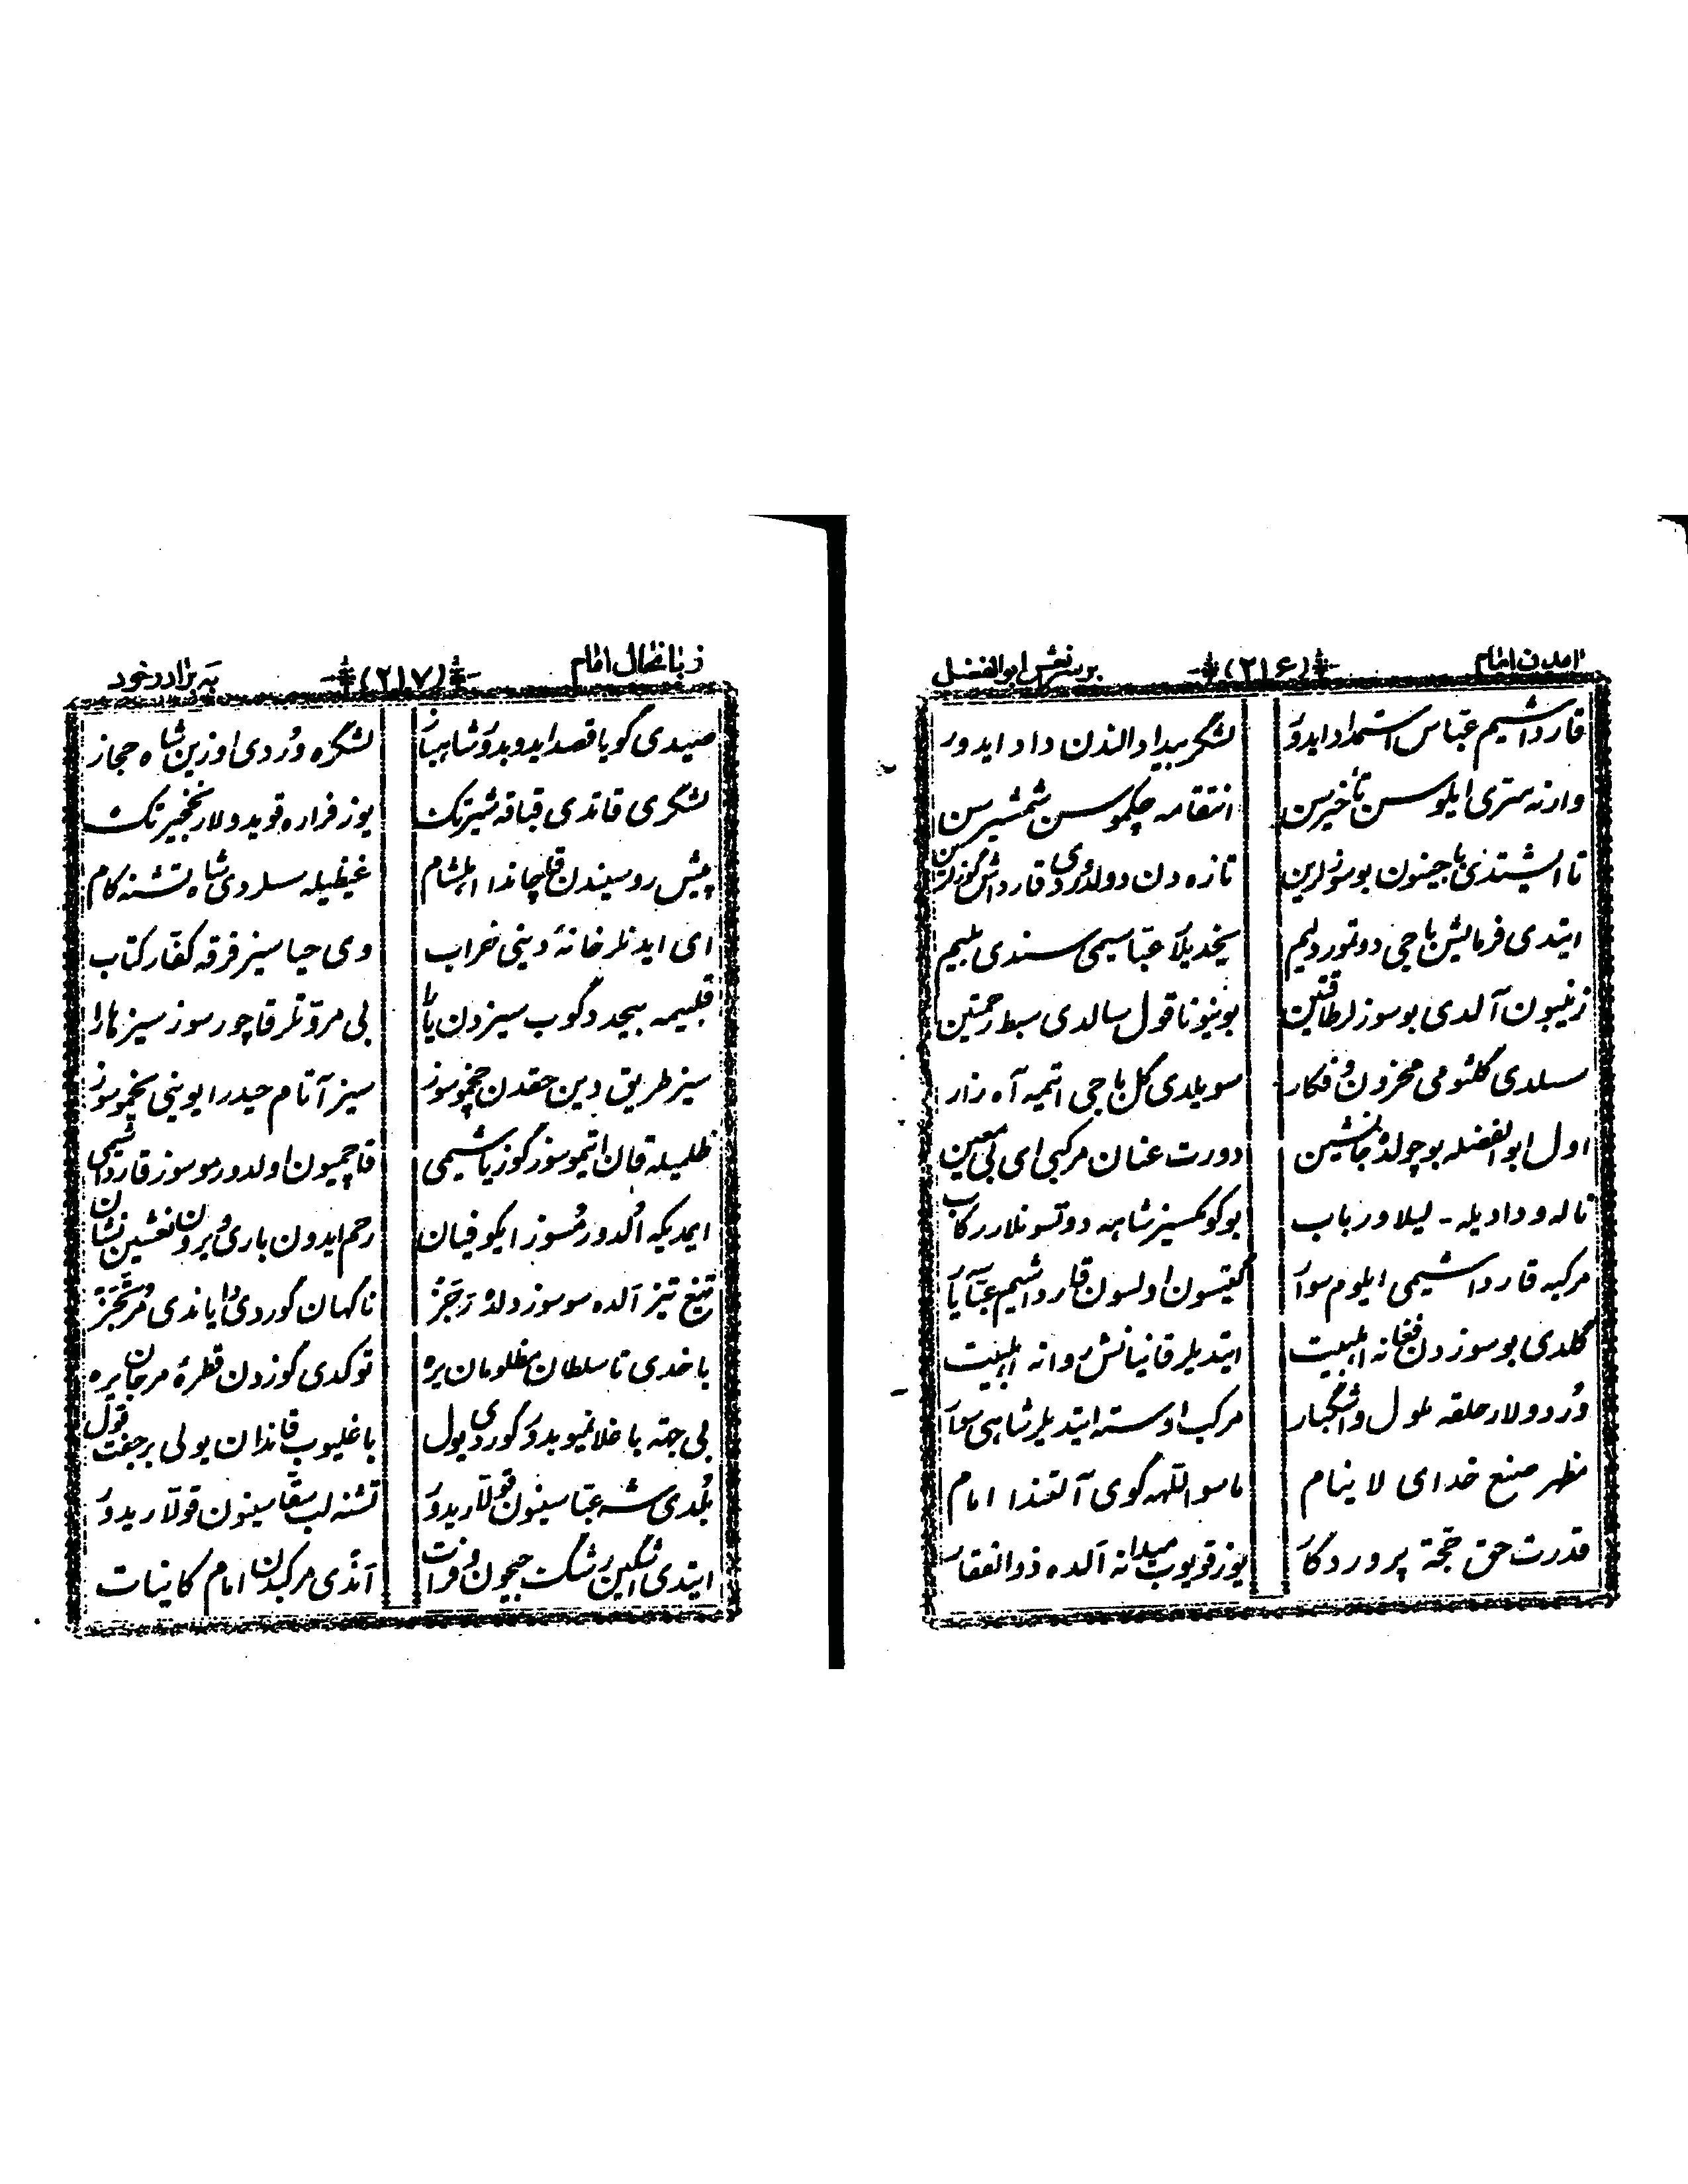 امدن امام (۲۱۶) بر سر نعش ابوالفضل
قارداشیم عبّاس استمداد ایدوَر لشگر بیداد النذن داد ایدور
وارنه ستری ایلوسن تأخیرسن انتقامه چکموسن شمشیرسن
تا ایشتدی باجینون بو سوزلرین تازه دن دولدوردی قارداش گوزلرین
ایتدی فرمایش باجی دوتموردلیم یخدیلا عبّاسیمی سندی بلیم
زینبون آلدی بو سوز لر طاقتین بوینونا قول سالدی سبط رحمتین
سسلدی کلثومی محزون و فکار سویلدی گل باجی اتمه آه زار
اول ابوالفضله بو چولدهٔ جانشین دورت عنان مرکبی ای بی معین
ناله و دادیله - لیلا ور باب بو کومکسیز شاهه دوتسونلار رکاب
مرکبه قارداشیمی ایلوم سوار گیتسون اولسون قارداشیم عبّاسه یار
گلدی بو سوزدن فغانه اهلبیت ایتدیلر قانیانش روانه اهلبیت
دُردولار حلقه ملول و اشگبار مرکب اوسته ایتدیلر شاهی سوار
مظهر صنع خدای لاینام ماسوا اللّهه گوی آلتندا امام
قدرت حق حجّة پروردگار یوز قویوب میدانه آلده ذوالفقار
زبانحال امام (۲۱۷) به برادر خود
صیدی گویا قصد ایدوبدوَر شاهباز لشگره وُردی اوزین شاه حجاز
لشگری قاتدی قباقه شیر تک یوز فراره قویدولار نخجیر تک
پیش روسیندن قاچاندا اهلشام غیظیله سسلردی شاه تشنه کام
ای ایدنلر خانهٔ دینی خراب وی حیاسیز فرقه کفّار کتاب
قلبیمه بیجد دگوب سیزدن یارا بی مروّتلر قاچورسوز سیز هارا
سیز طریق دین حقدن چخموسوز سیز آتام حیدر ایوینی یخموسوز
ظلمیله قان اتیموسوز گوز یاشیمی قاچمیون اولدورموسوز قارداشیمی
ایمدیکه اُلدورمُسوز ایکوفیان رحم ایدون باری ویرون نعشین نشان
تیغ تیز آلده سوسوز دلدهٔ رَجَز ناگهان گوردی دایاندی
باخدی تا سلطان مظلومان یره توکدی گوزدن قطرهٔ مرجان یره
بی جهته باغلانمیوبدوَر گوردی یول باغلیوب قاندان یولی بر جفت قول
بُلدی شه عبّاسینون قولّاریدوَر تشنه لب سقّاسینون قولّاریدوَر
ایتدی اشگین رشگ جیحون و فرات آندی مرکبدن امام کاینات